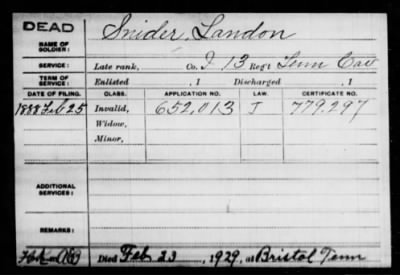 DEAD
NAME OF SOLDIER: Snider, Landon
SERVICE: Late rank, Co. I 13 Reg't Tenn Cav
TERM OF SERVICE: Enlisted , 1 Discharged , 1
DATE OF FILING. CLASS. APPLICATION NO. LAW. CERTIFICATE NO.
1888 Feb 25 Invalid, 652,013 J 779.297
Widow,
Minor,
ADDITIONAL SERVICES:
REMARKS:
Died Feb 23, 1929, at Bristol Tenn